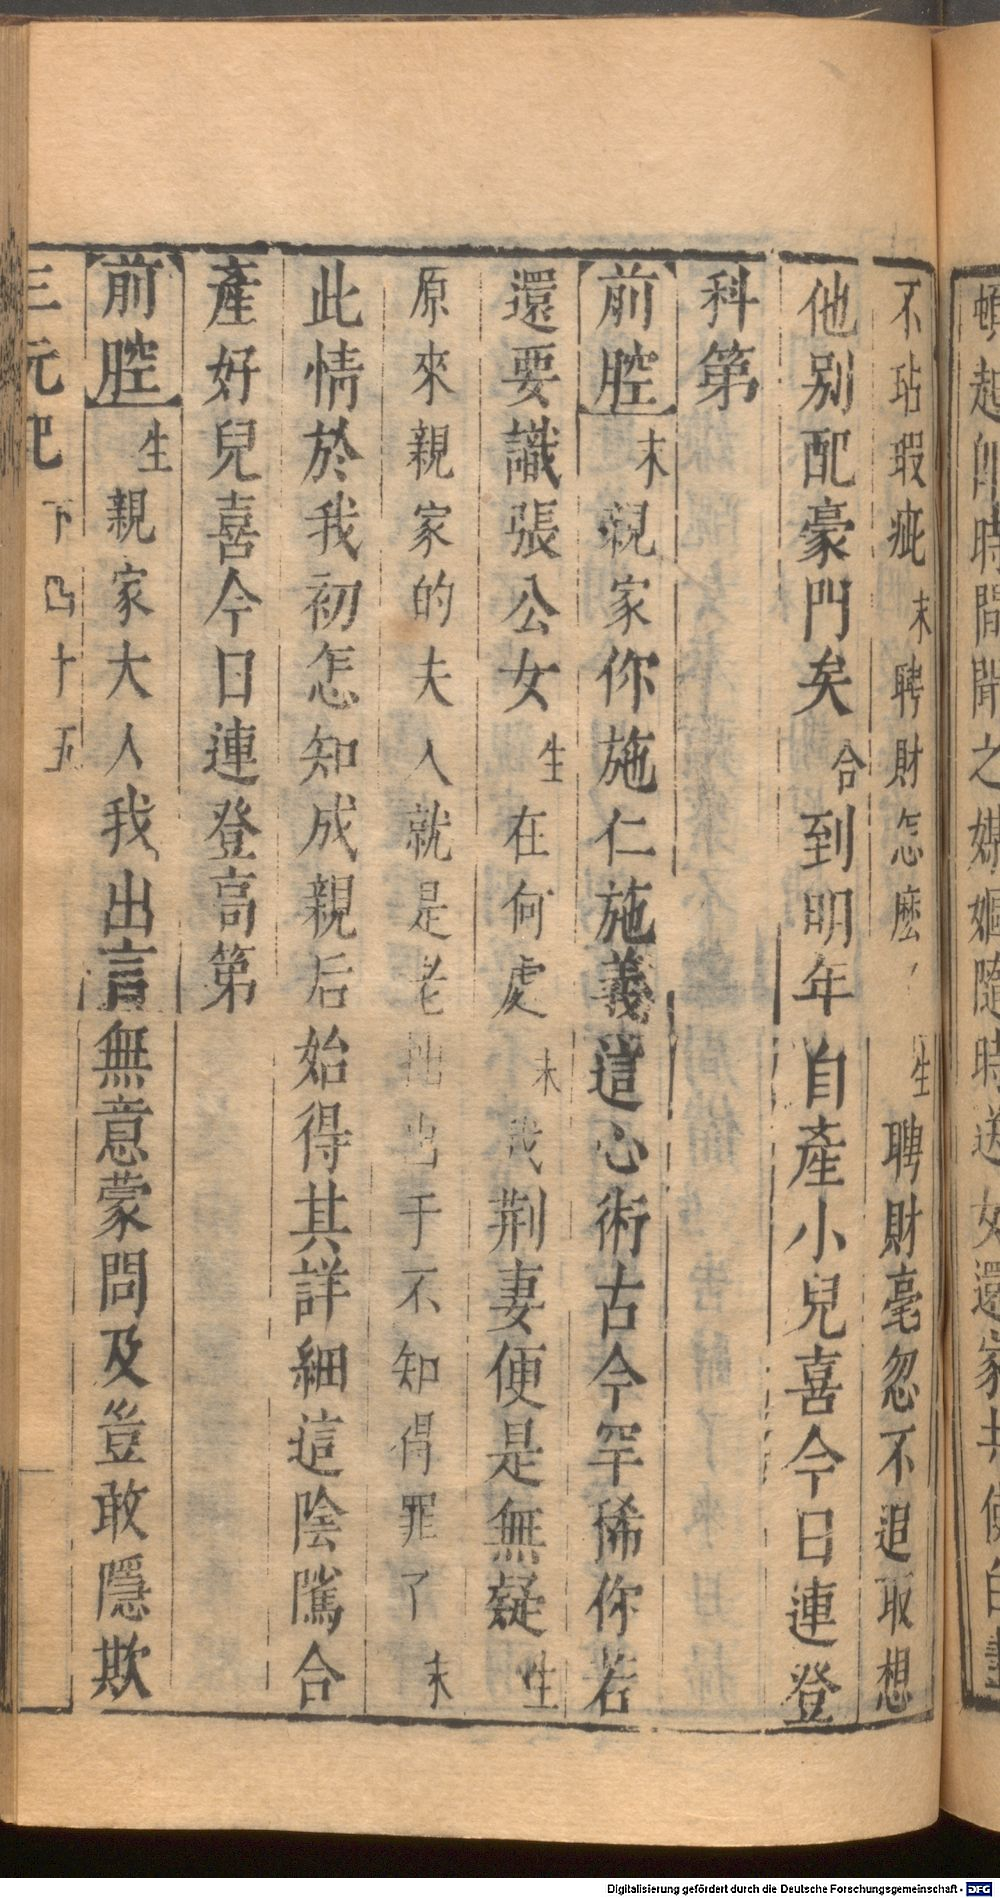 頓起即時間聞之媒嫗隨時送女還家共
不玷瑕疵末聘財怎麽生聘財毫忽不追取想
他别配豪門矣合到明年自產小兒喜今日連登
科第
前腔末親家你施仁施義這心術古今罕稀你若
還要識張公女生在何處末我荆妻便是無疑生
原來親家的夫人就是老于不知得罪了末
此情於我初怎知成親后始得其詳細這陰隲合
產好兒喜今日連登高第
前腔生親家大人我出言無意蒙問及豈敢隱欺
三元記下凸十五
Digitalisierung gefördert durch die Deutsche Forschungsgemeinschaft - DFG